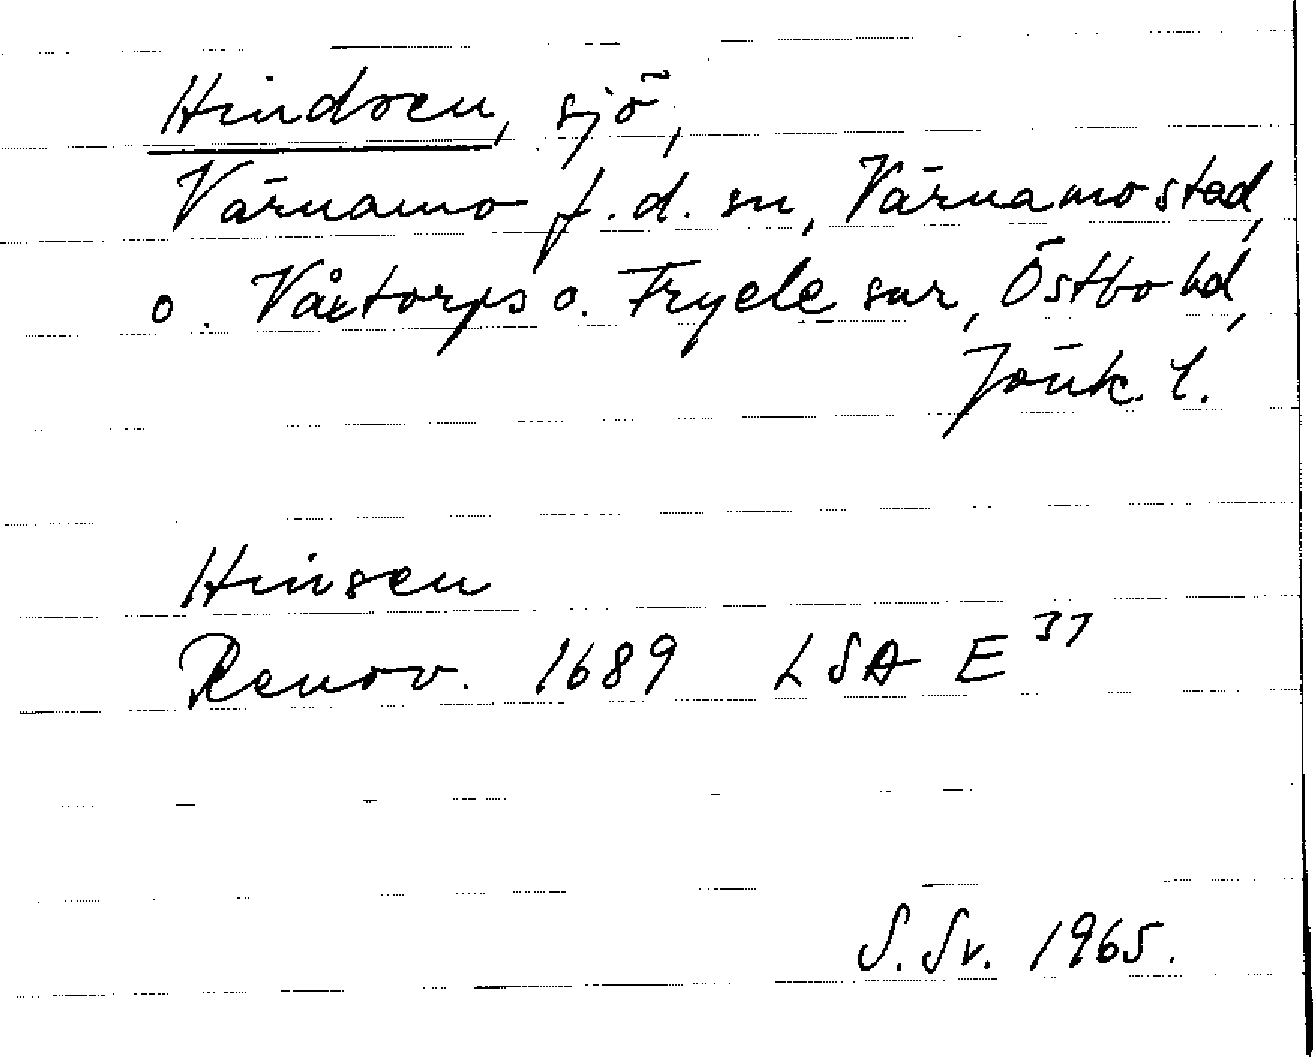 Hindsen, sjö,
Värnamo f.d. sn, Värnamo stad,
o. Våxtorps o. Tryele snr, Östbo hd,
Jönk. l.
Hinsen
Renov. 1689 LSA E 37
S. Sv. 1965.